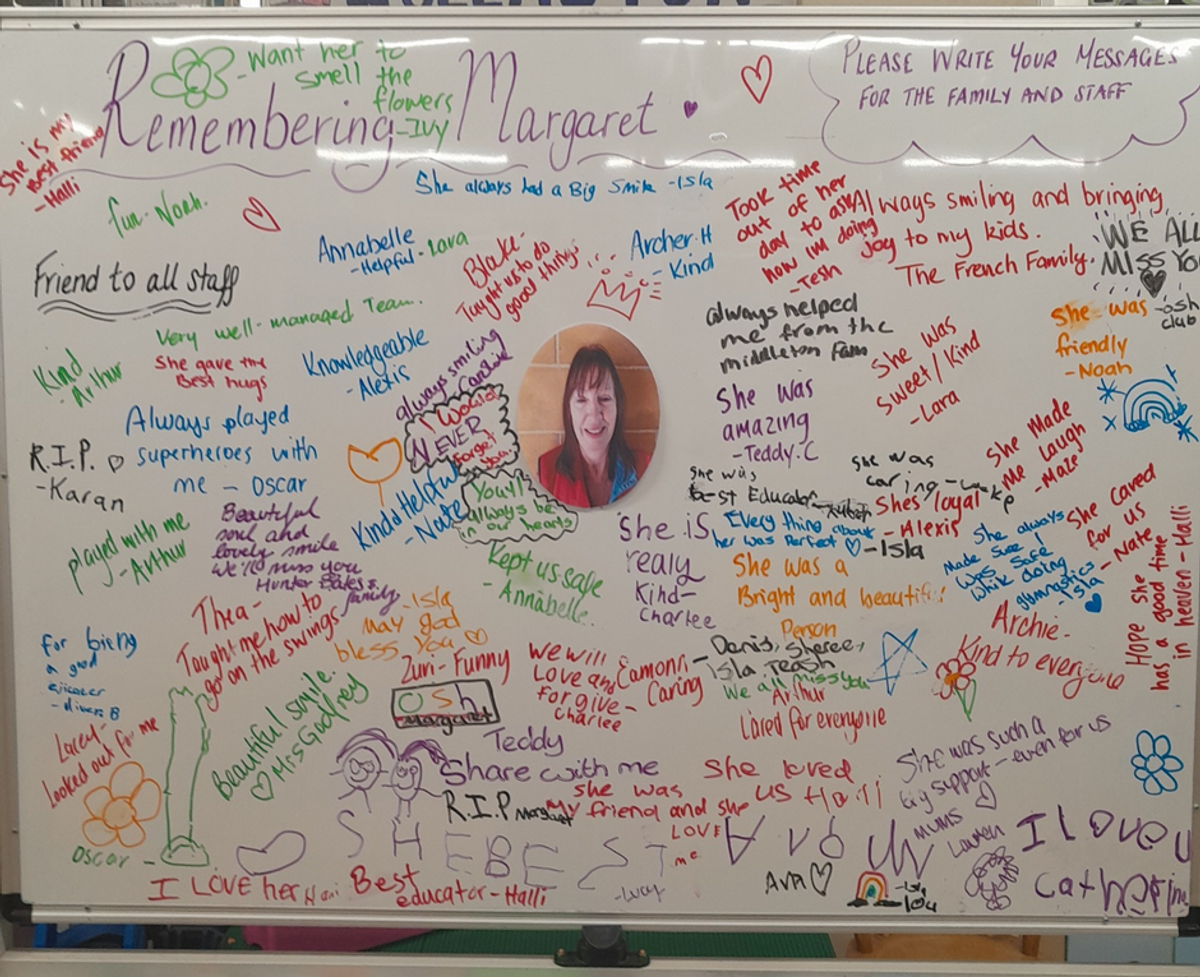 Remembering Margaret
Want her to
smell the
flowers
-IVY
PLEASE WRITE YOUR MESSAGES
FOR THE FAMILY AND STAFF
She is my
Best friend
- Halli
fun. Noah.
She always had a Big Smile -Isla
Took time
out of her
day to ask
how im doing
-Tesh
Always smiling and bringing
Joy to my kids.
The French Family.
WE ALL
MISS YOU
-osh
club
Friend to all staff
Annabelle
-Helpful - Lara
Blake-
Taught us to do
good things
Archer.H
- Kind
Very well-managed Team.
Kind
Arthur
She gave the
Best hugs
Knowledgeable
- Alexis
always smiling
always helped
me from the
middleton Fam
She was
sweet/Kind
-Lara
She was
friendly
-Noah
Always played
superheroes with
me - OSCAR
R.I.P.
-Karan
I Would
NEVER
forget
you
She was
amazing
-Teddy.C
She Made
Me laugh
-Maze
played with me
-Arthur
Beautiful
soul and
lovely smile
We'll miss you
Hunter Bates &
family
Kind a Helpful
- Nate
You'll
always be
in our hearts
She was
best Educator
she was
caring -
Shes loyal
- Alexis
Every thing about
her was Perfect
-Isla
She always
Made Sure I
was Safe
while doing
gymnastics
- Isla
She cared
for us
- Nate
Hope she
has a good time
in heaven - Halli
Kept us safe
- Annabelle.
She is
realy
Kind-
Charlee
She was a
Bright and beautiful
Person
Thea-
Taught me how to
go on the swings
-Isla
May god
bless you
for bieng
a good
Zuri - Funny
We will
Love and
forgive -
Charlee
Eamonn -
Caring
Denis, Sheree,
Isla, Teash
We all miss you
Arthur
Cared for everyone
Archie-
Kind to everyone
Lacey-
Looked out for me
Beautiful smile.
Mrs Godfrey
osh
Margaret
Teddy
Share with me
R.I.P Margaret
she was
My friend and she
LOVE
me
She loved
us Halli
She was such a
big support - even for us
MUMS
Lauren
OSCAR -
SHE BEST
I LOVE her
Best
educator - Halli
AVA
I Love U
Catherine